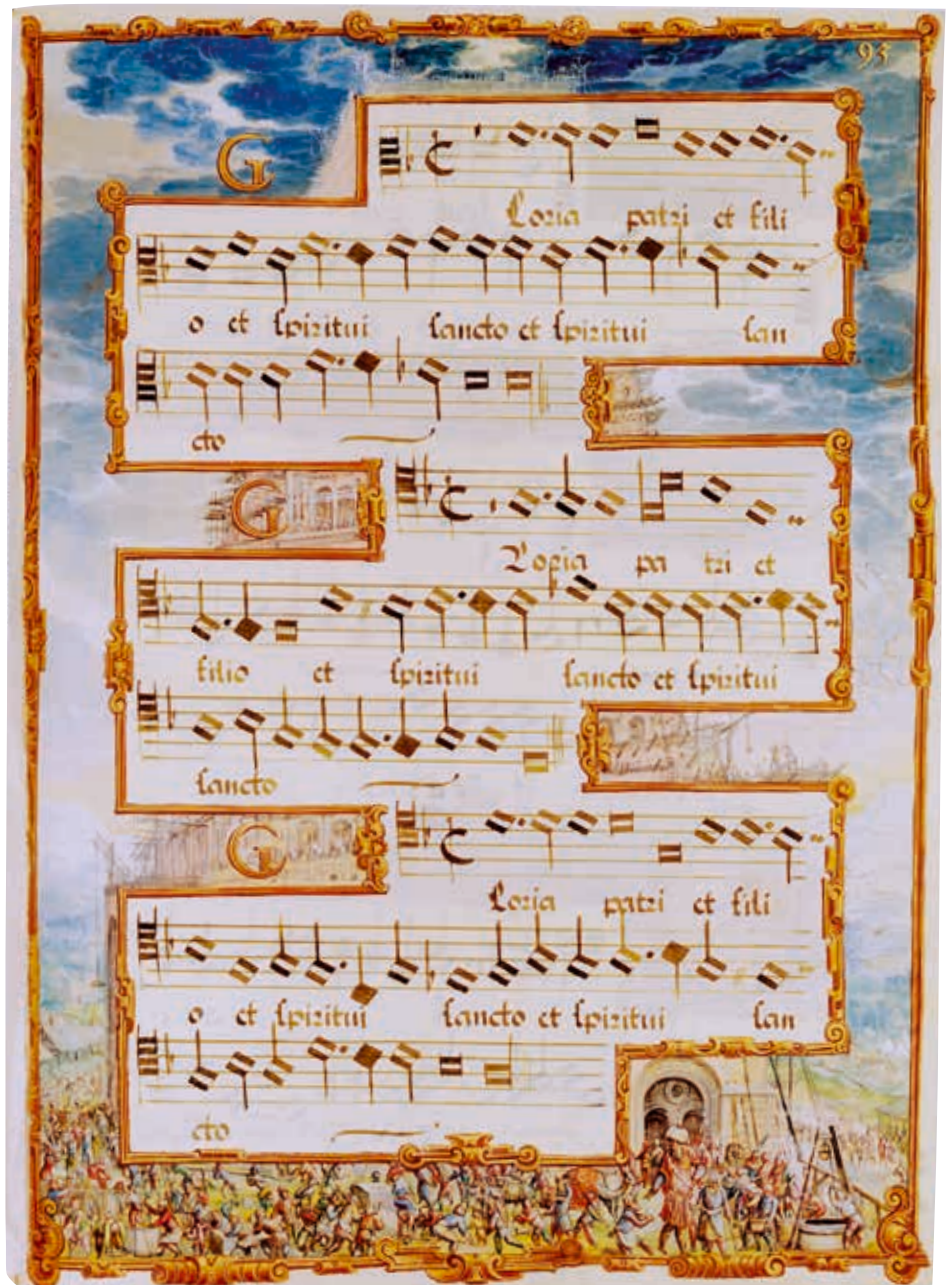 93
G Loria patri et fili
o et spiritui sancto et spiritui san
cto
G Loria pa tri et
filio et spiritui sancto et spiritui
sancto
G Loria patri et fili
o et spiritui sancto et spiritui san
cto